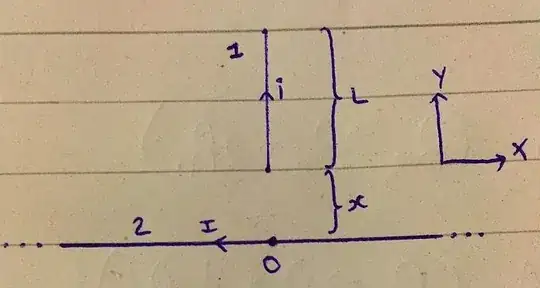 1
i
L
Y
X
x
2
I
...
...
O